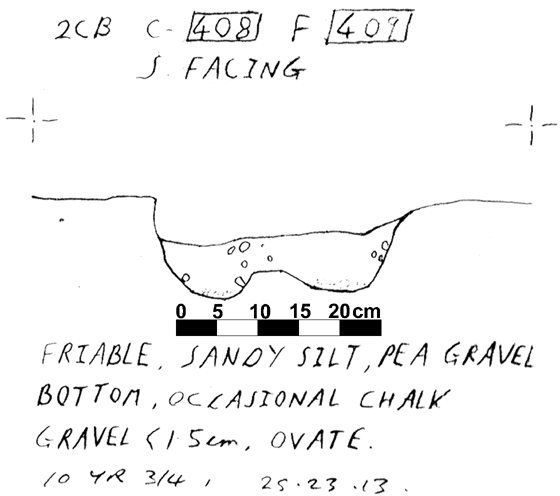 2CB C- 408 F 409
S. FACING
0 5 10 15 20cm
FRIABLE, SANDY SILT, PEA GRAVEL
BOTTOM, OCCASIONAL CHALK
GRAVEL <1.5cm, OVATE.
10 YR 3/4, 25.23.13.